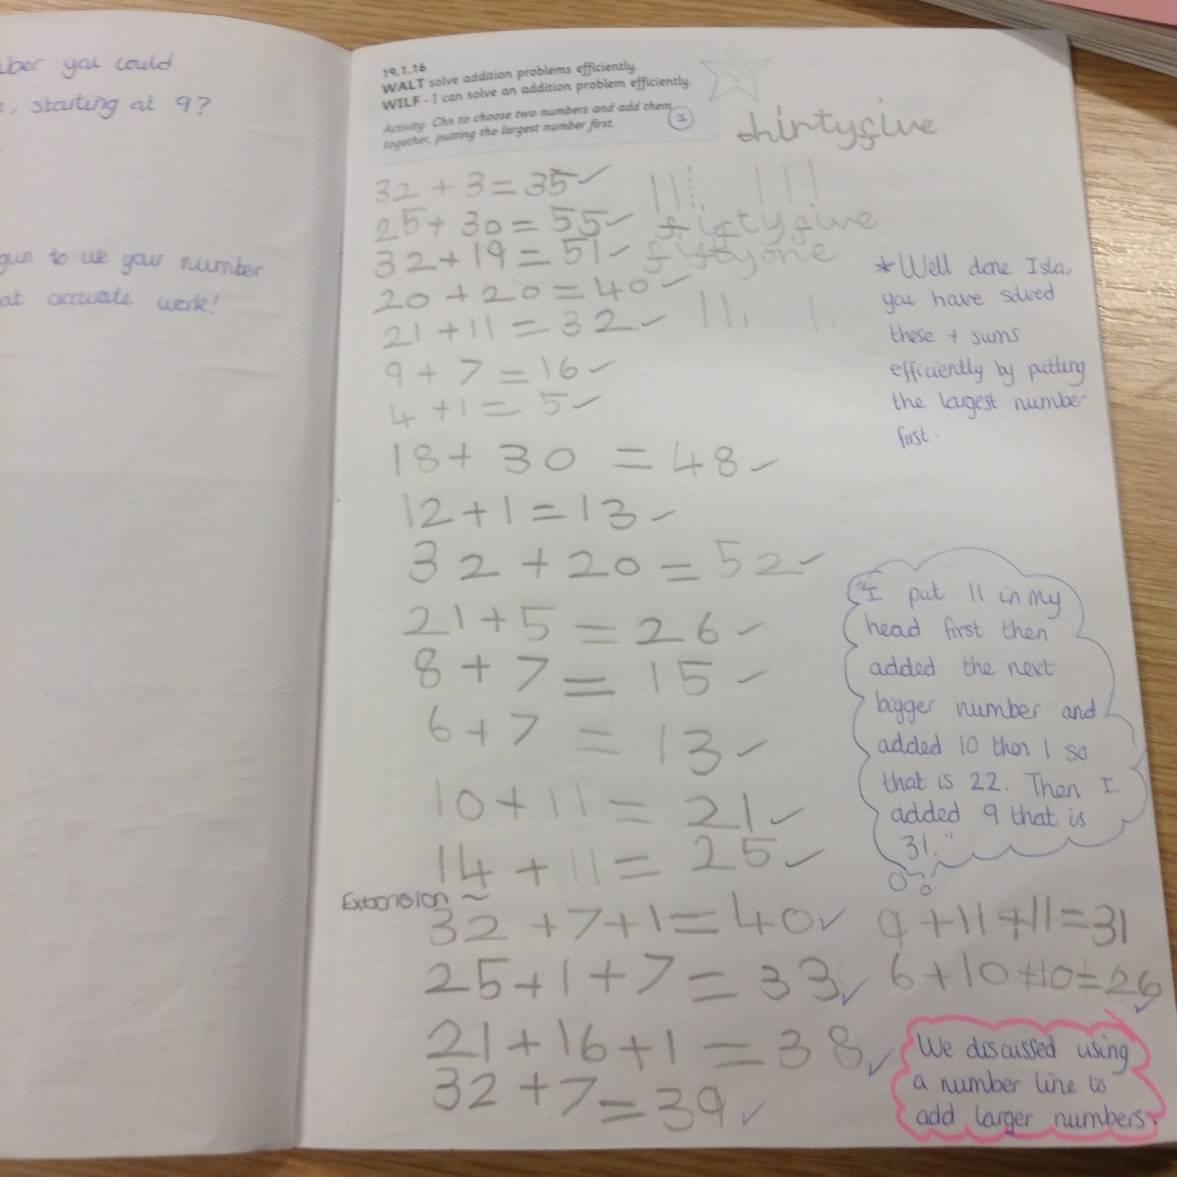 ber you could
, starting at 9?
gun to use your number
at accurate work!
19.1.16
WALT solve addition problems efficiently.
WILF - I can solve an addition problem efficiently.
Activity: Chn to choose two numbers and add them
together, putting the largest number first.
I
thirtyfive
32 + 3 = 35 ✓
25 + 30 = 55 ✓ fiftyfive
32 + 19 = 51 ✓ fiftyone
20 + 20 = 40 ✓
21 + 11 = 32 ✓
9 + 7 = 16 ✓
4 + 1 = 5 ✓
18 + 30 = 48 ✓
12 + 1 = 13 ✓
32 + 20 = 52 ✓
21 + 5 = 26 ✓
8 + 7 = 15 ✓
6 + 7 = 13 ✓
10 + 11 = 21 ✓
14 + 11 = 25 ✓
* Well done Isla
you have solved
these + sums
efficiently by putting
the largest number
first.
"I put 11 in my
head first then
added the next
bigger number and
added 10 then 1 so
that is 22. Then I
added 9 that is
31."
Extension ~
32 + 7 + 1 = 40 ✓
25 + 1 + 7 = 33 ✓
21 + 16 + 1 = 38 ✓
32 + 7 = 39 ✓
9 + 11 + 11 = 31
6 + 10 + 10 = 26 ✓
We discussed using
a number line to
add larger numbers.